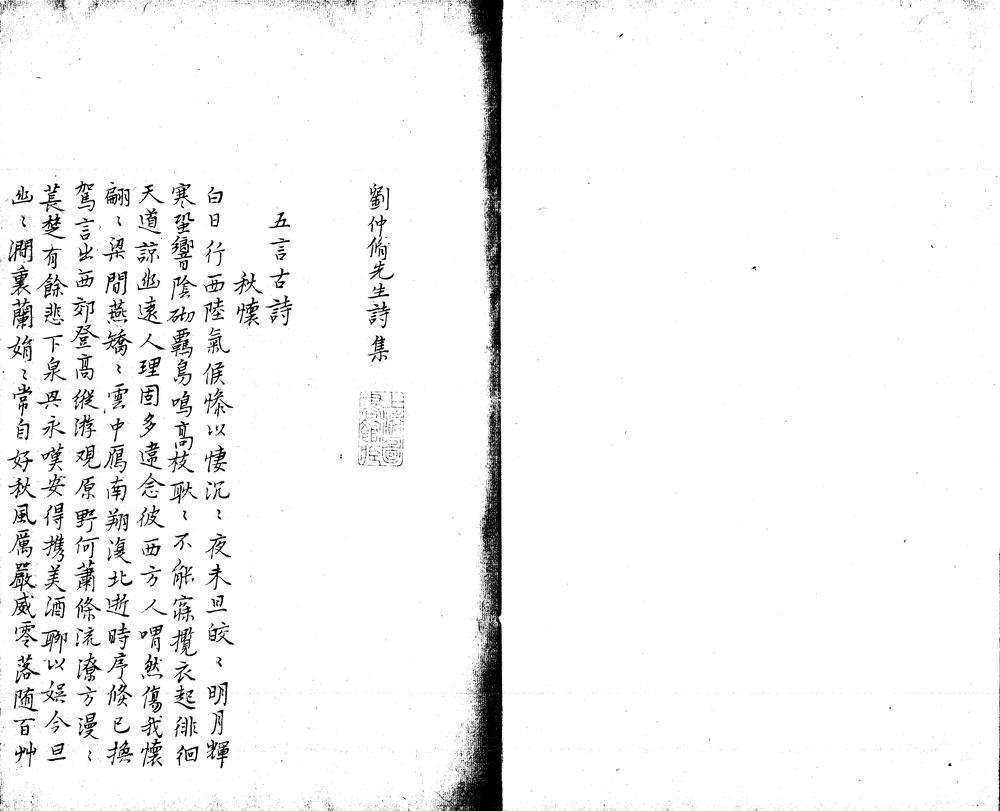 劉仲脩先生詩集
五言古詩
秋懷
白日行西陸氣候慘以悽沉〻夜未旦皎〻明月輝
寒蛩響陰砌羈鳥鳴高枝耿〻不能寐攬衣起徘徊
天道諒幽遠人理固多違念彼西方人喟然傷我懷
翩〻梁間燕矯〻雲中鴈南翔復北逝時序倏已換
駕言出西郊登高縱游观原野何蕭條流潦方漫〻
萇楚有餘悲下泉興永嘆安得携美酒聊以娛今旦
幽〻澗裏蘭娟〻常自好秋風厲嚴威零落随百艸